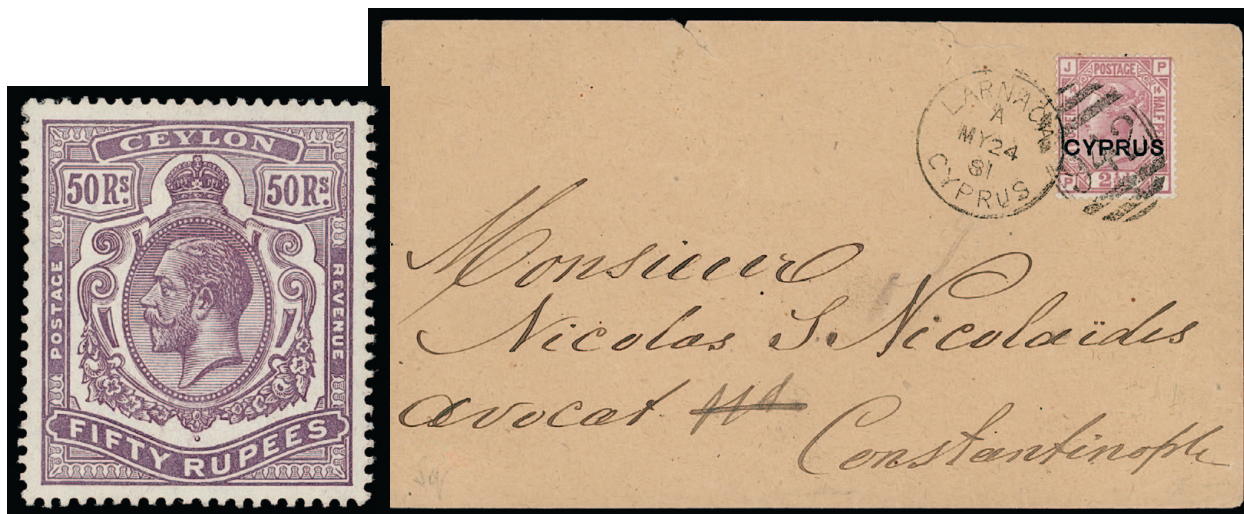 CEYLON
50Rs 50Rs
POSTAGE
REVENUE
FIFTY RUPEES
LARNACA
A
MY 24
81
CYPRUS
J POSTAGE P
HALF
CYPRUS
942
P 2½
Monsieur
Nicolas S. Nicolaïdis
avocat
Constantinople